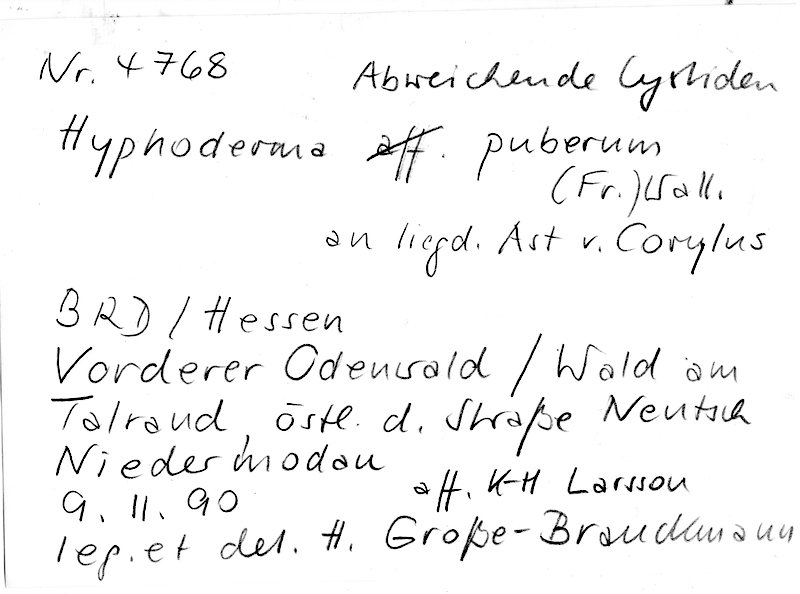 Nr. 4768 Abweichende Cystiden
Hyphoderma aff. puberum
(Fr.) Wall.
an liegd. Ast v. Corylus
BRD / Hessen
Vorderer Odenwald / Wald am
Talrand, östl. d. Straße Neutsch
Niedermodau
9. 11. 90 aff. K-H Larsson
leg. et det. H. Große-Brauckmann